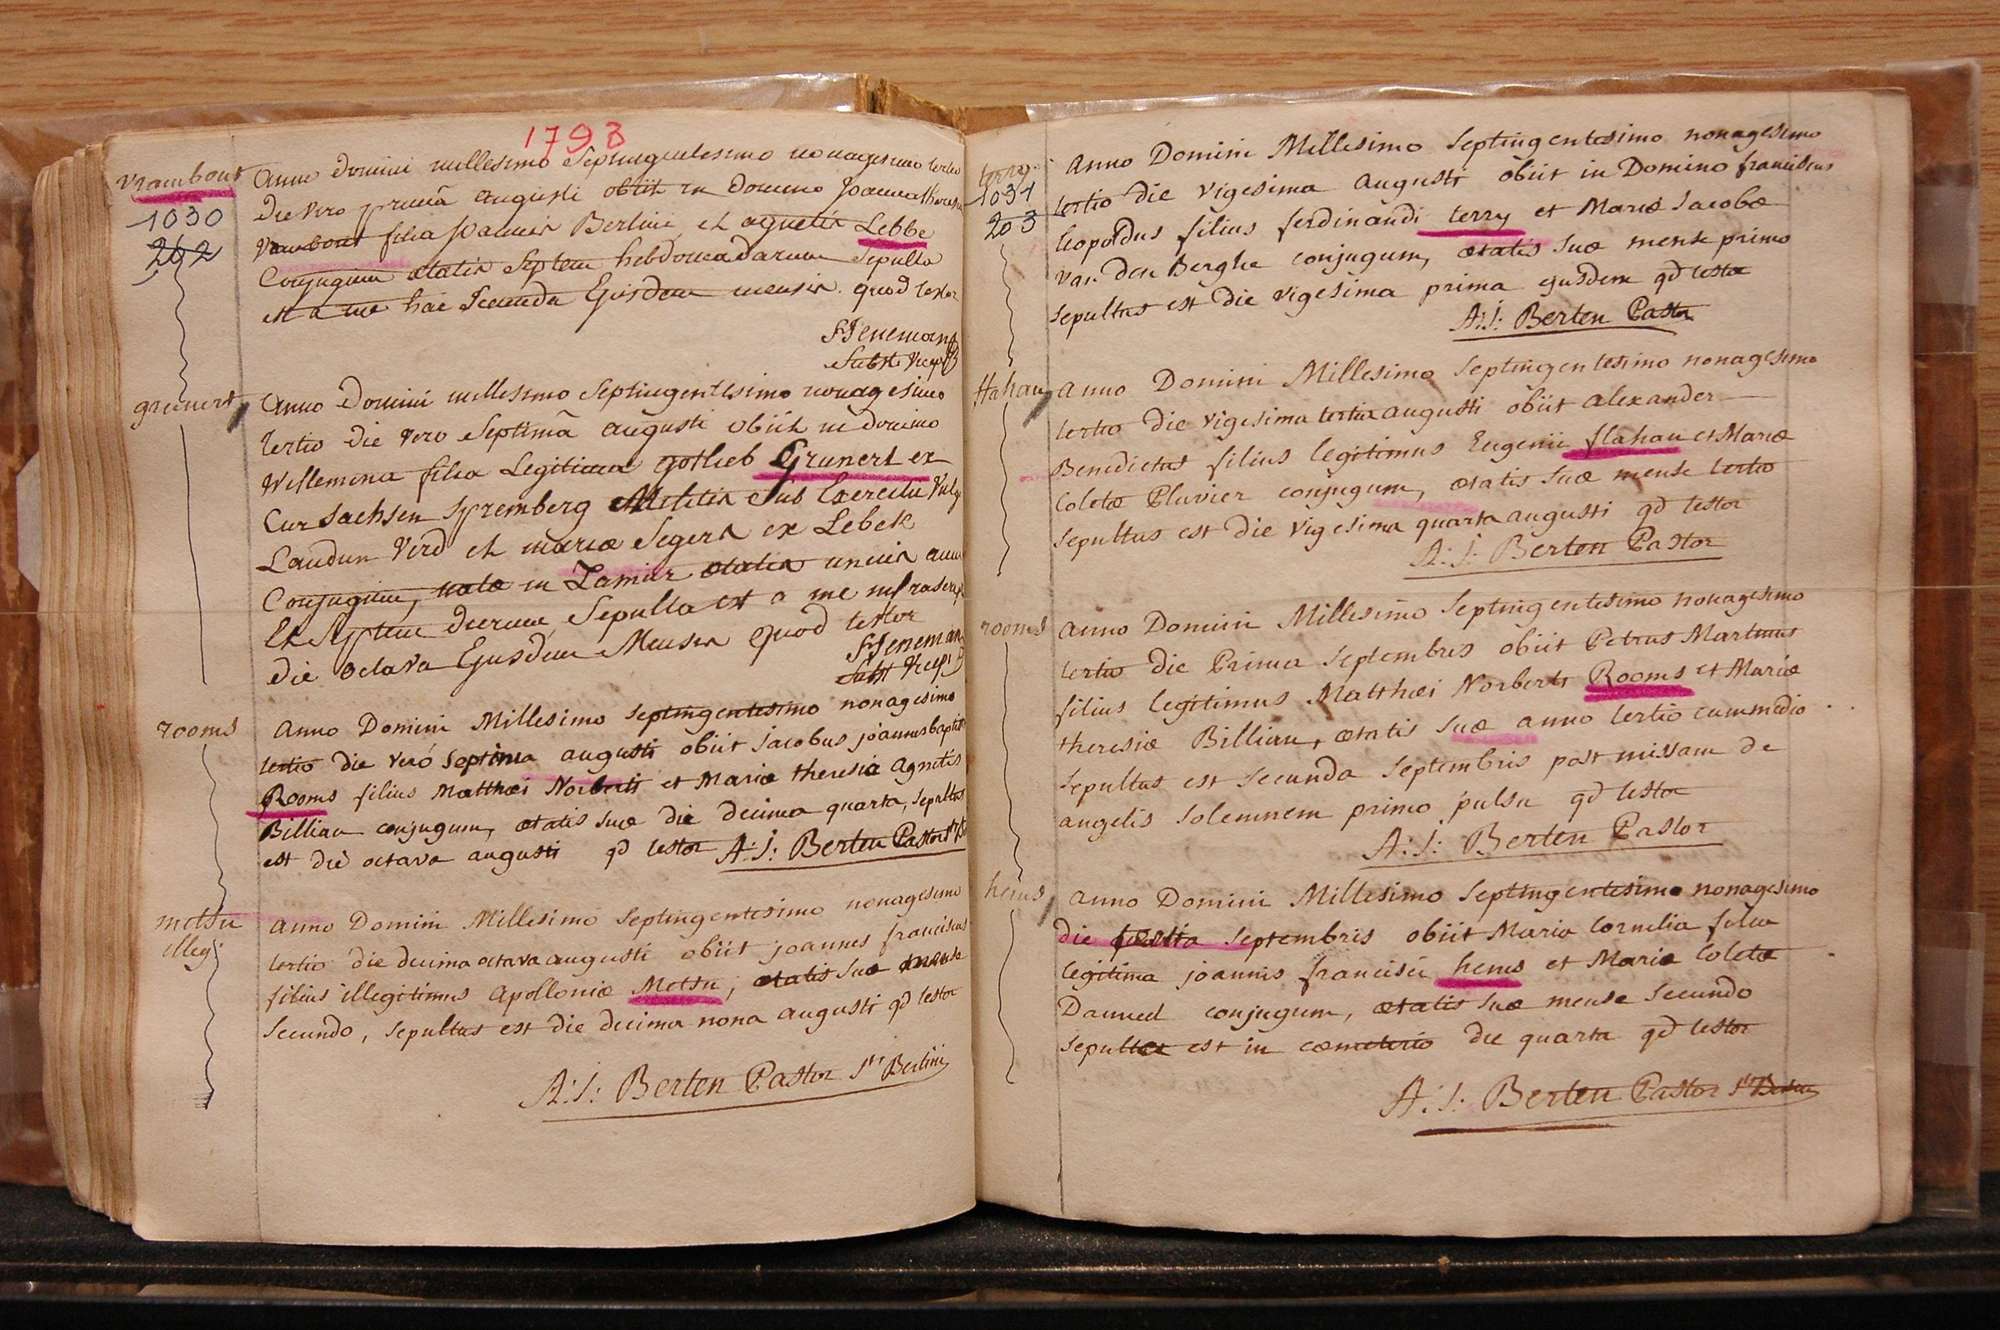 1793
Vrambout
1030
202
Anno Domini millesimo Septingentesimo nonagesimo tertio
Die vero primâ augusti obiit in domino Joanna theresia
Vrambout filia Joannis Bertini et agnetis Lebbe
Conjugum ætatis Septem hebdomadarum Sepulta
est a me hac Secunda Ejusdem mensis quod testor
Subst
grunert
Anno Domini millesimo Septingentesimo nonagesimo
tertio Die vero Septimâ augusti obiit in domino
Willemina filia Legitima gotlieb Grunert ex
Cur Sachsen Spremberg Militis Sub Exercitu
Laudun Verd et mariæ Segers ex Lebek
Conjugum, natæ in ætatis unius anni
Et Septem dierum, Sepulta est a me
Die octava Ejusdem Mensis quod testor
Subst
rooms
Anno Domini Millesimo Septingentesimo nonagesimo
tertio die veró Septima augusti obiit jacobus joannes
Rooms filius Matthæi Norberti et Mariæ theresiæ agnetis
Billiau conjugum, ætatis suæ die decima quarta, sepultus
est die octava augusti qd testor A: J: Berten Pastor
metsu
illeg:
Anno Domini Millesimo Septingentesimo nonagesimo
tertio die decima octava augusti obiit joannes franciscus
filius illegitimus Apolloniæ Metsu, ætatis suæ mense
secundo, sepultus est die decima nona augusti qd testor
A: J: Berten Pastor Sti Bertini
terry
1031
203
Anno Domini Millesimo Septingentesimo nonagesimo
tertio die vigesima augusti obiit in Domino franciscus
leopoldus filius ferdinandi terry et Mariæ Jacobæ
van den Berghe conjugum, ætatis suæ mense primo
sepultus est die vigesima prima ejusdem qd testor
A: J: Berten Pastor
flahau
Anno Domini Millesimo Septingentesimo nonagesimo
tertio die vigesima tertia augusti obiit alexander
Benedictus filius legitimus Eugenii flahau et Mariæ
Coletæ Pluvier conjugum, ætatis suæ mense tertio
sepultus est die vigesima quarta augusti qd testor
A: J: Berten Pastor
rooms
Anno Domini Millesimo Septingentesimo nonagesimo
tertio die Prima Septembris obiit Petrus Martinus
filius legitimus Matthæi Norberti Rooms et Mariæ
theresiæ Billiau, ætatis suæ anno tertio cum medio
sepultus est secunda septembris post missam de
angelis solemnem primo pulsu qd testor
A: J: Berten Pastor
heus
Anno Domini Millesimo Septingentesimo nonagesimo
die Septembris obiit Maria Cornilia filia
legitima joannis francisci heus et Mariæ Coletæ
Danneel conjugum, ætatis suæ mense secundo
sepulta est in cœmeterio die quarta qd testor
A: J: Berten Pastor Sti Bertini